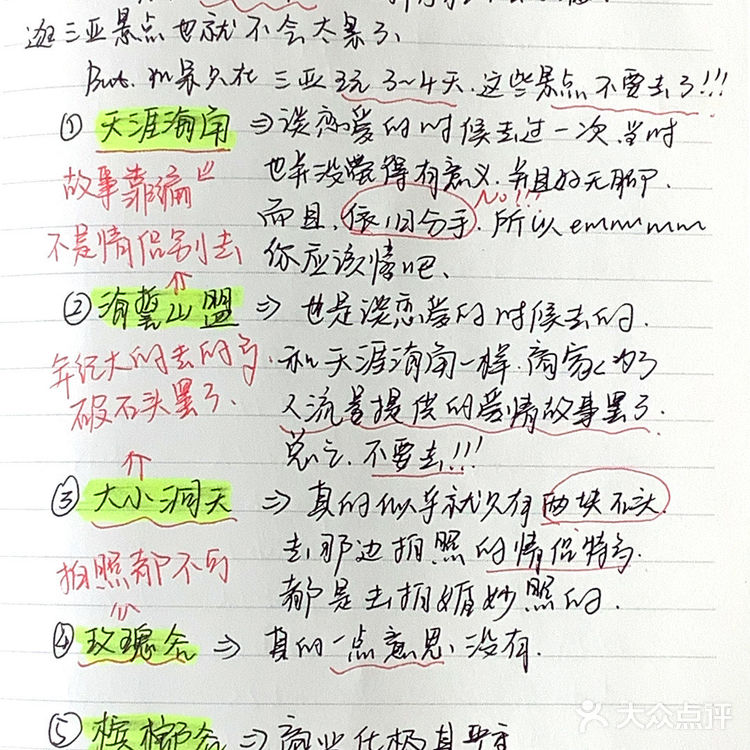 逛三亚景点也就不会太累了、
But. 如果只在三亚玩3~4天.这些景点不要去了!!!
① 天涯海角 ⇒ 谈恋爱的时候去过一次.当时
也并没觉得有意义.并且好无聊.
故事靠编
No!!!
而且.依旧分手.所以emmmmm
不是情侣别去
你应该懂吧、
② 海誓山盟 ⇒ 也是谈恋爱的时候去的.
年纪大的去的多.
和天涯海角一样.商家为了
破石头罢了.
人流量提供的爱情故事罢了.
总之.不要去!!!
③ 大小洞天 ⇒ 真的似乎就只有两块石头.
去那边拍照的情侣特多.
拍照都不可
都是去拍婚纱照的.
④ 玫瑰谷 ⇒ 真的一点意思没有.
⑤ 槟榔谷 ⇒ 商业化极其严重
大众点评